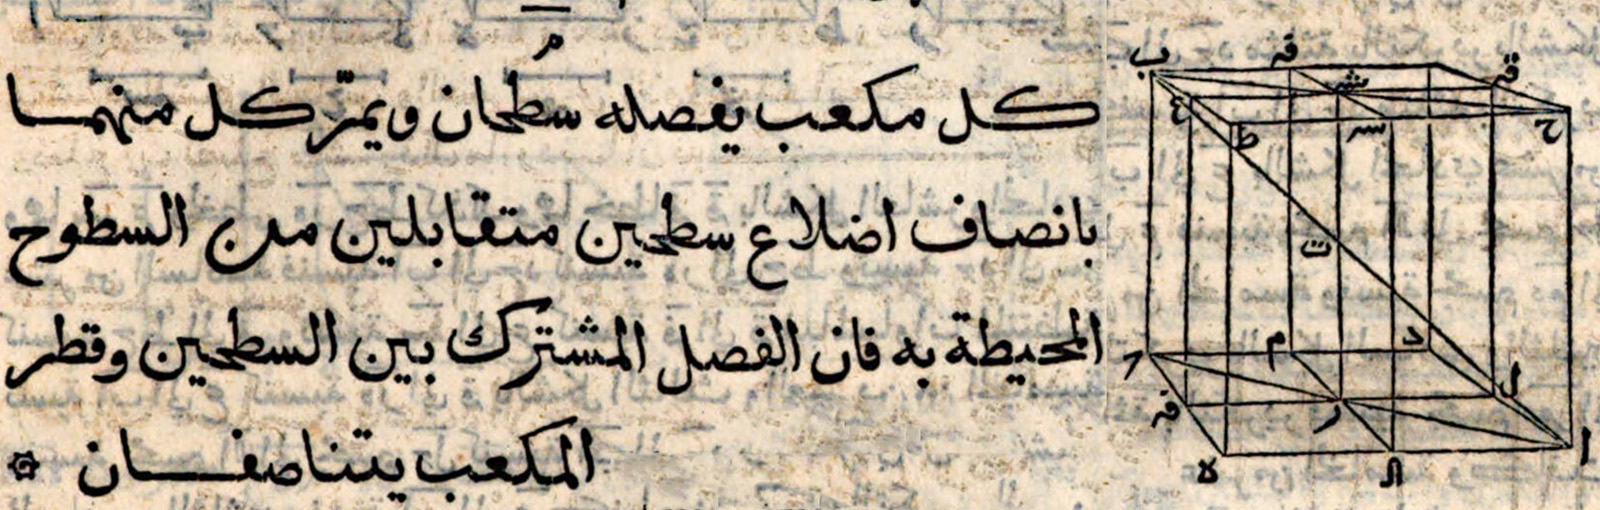 كل مكعب يفصله سطحان ويمرّ كل منهما
بانصاف اضلاع سطحين متقابلين من السطوح
المحيطة به فان الفصل المشترك بين السطحين وقطر
المكعب يتناصفان
ب
ق
ق
ش
ع
ط
س
ح
ت
م
د
ل
ر
ه
ا